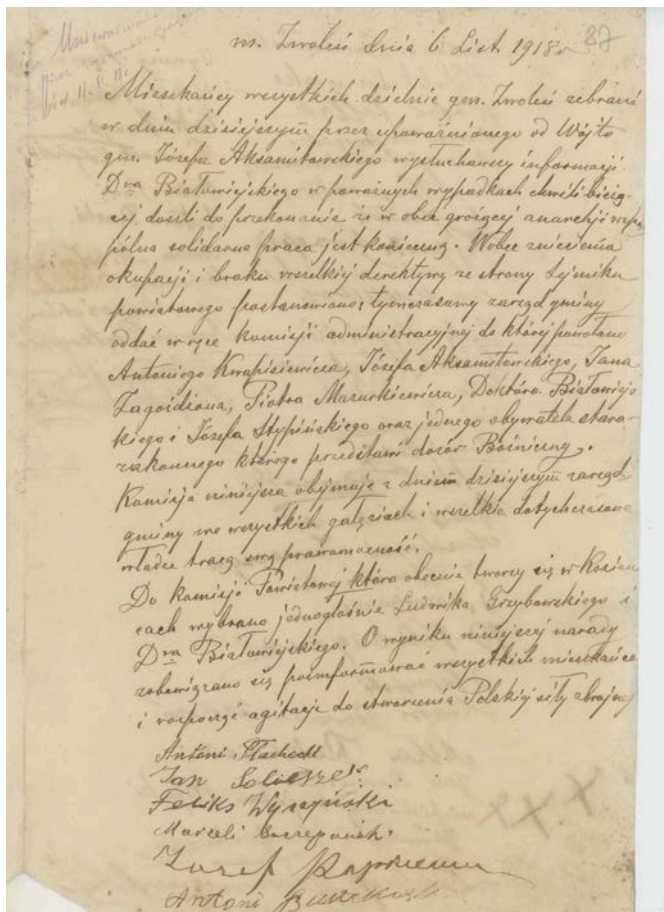 87
m. Zwoleń dnia 6 List. 1918 r
Mieszkańcy wszystkich dzielnic gm. Zwoleń zebrani
w dniu dzisiejszym przez upoważnionego od Wójta
gm. Józefa Aksamitowskiego wysłuchawszy informacji
Dra Białowiejskiego w poważnych wypadkach chwili bieżą-
cej doszli do przekonania że w obec grożącej anarchji wspó
pólna solidarna praca jest konieczną. Wobec zniesienia
okupacji i braku wszelkiej derektywy ze strony Sejmiku
powiatowego postanowiono, tymczasowy zarząd gminy
oddać w ręce komisji administracyjnej do której powołano
Antoniego Kwapisiewicza, Józefa Aksamitowskiego, Jana
Zagoźdzona, Piotra Mazurkiewicza, Doktora Białowiejs
kiego i Józefa Stypińskiego oraz jednego obywatela staro-
zakonnego którego przedstawi dozór Bóźniczny.
Komisja niniejsza obejmuje z dniem dzisiejszym zarząd
gminy we wszystkich gałęziach i wszelkie dotychczasowe
władze tracą swą prawomocność.
Do komisji Powiatowej która obecnie tworzy się w Kozieni
cach wybrano jednogłośnie Ludwika Grzybowskiego i
Dra Białowiejskiego. O wyniku niniejszej narady
zobowiązano się poinformować wszystkich mieszkańców
i rozpocząć agitacje do stworzenia Polskiej siły zbrojnej
Antoni
Jan
Feliks Wyczyński
Marceli
Józef
Antoni